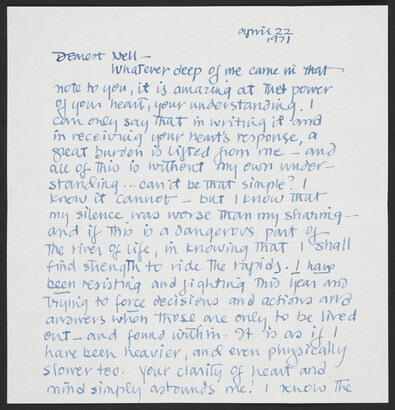 April 22
1971
Dearest Nell —
Whatever deep of me came in that
note to you, it is amazing at the power
of your heart, your understanding. I
can only say that in writing it and
in receiving your heart's response, a
great burden is lifted from me — and
all of this is without my own under-
standing ... can it be that simple? I
know it cannot — but I know that
my silence was worse than my sharing —
and if this is a dangerous part of
the river of life, in knowing that I shall
find strength to ride the rapids. I have
been resisting and fighting this year and
trying to force decisions and actions and
answers when those are only to be lived
out — and found within. It is as if I
have been heavier, and even physically
slower too. Your clarity of heart and
mind simply astounds me! I know the